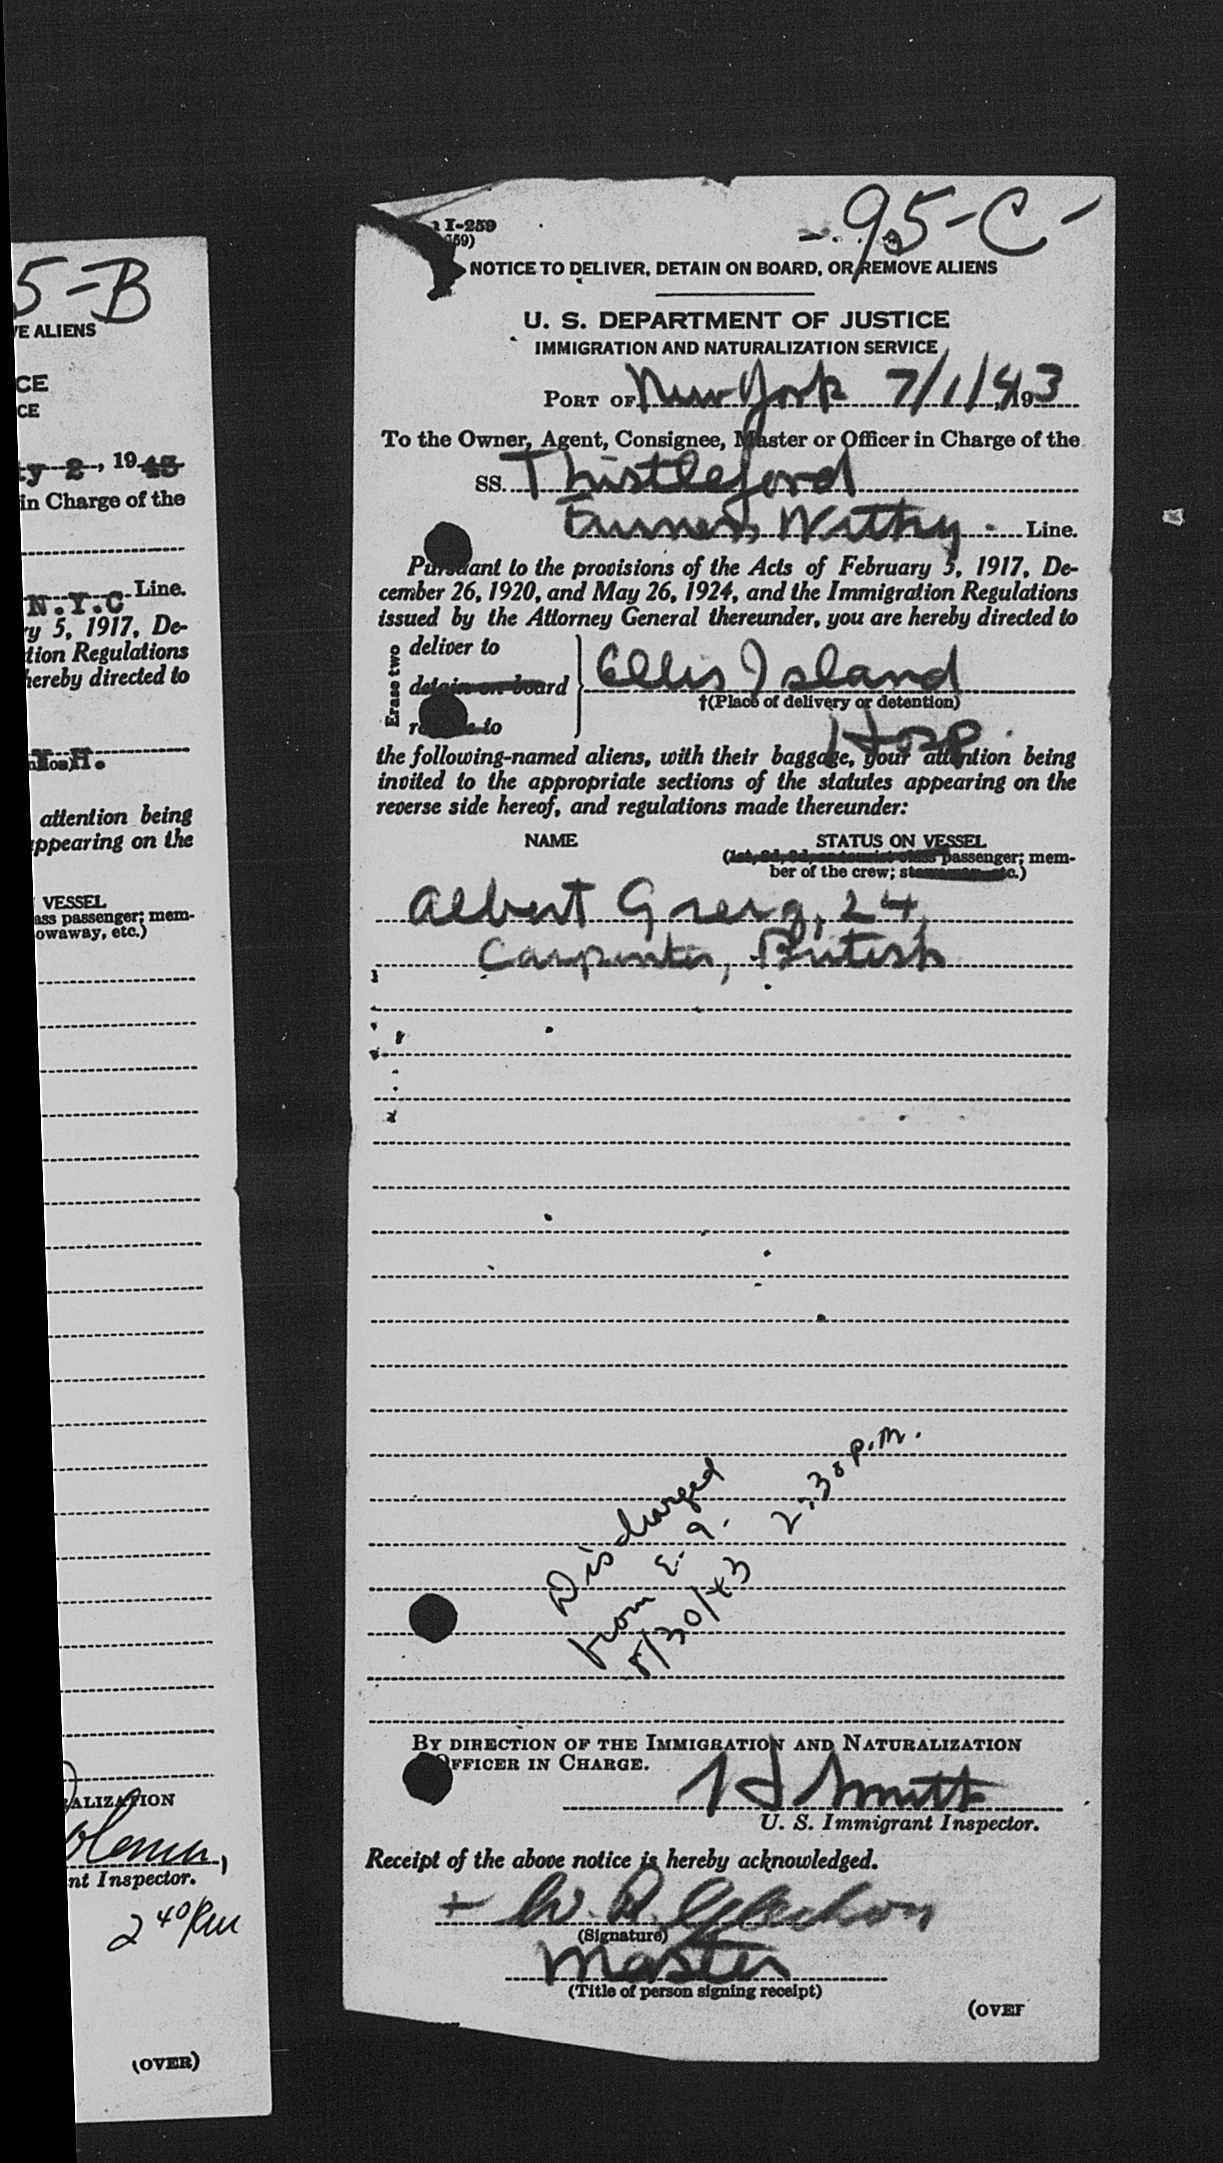 5-B
E ALIENS
CE
CE
y 2, 1943
in Charge of the
N.Y.C Line.
y 5, 1917, De-
tion Regulations
hereby directed to
attention being
appearing on the
VESSEL
ass passenger; mem-
owaway, etc.)
ALIZATION
nt Inspector.
2 40 PM
(OVER)
95-C-
I-259
59)
NOTICE TO DELIVER, DETAIN ON BOARD, OR REMOVE ALIENS
U. S. DEPARTMENT OF JUSTICE
IMMIGRATION AND NATURALIZATION SERVICE
PORT OF New York 7/1/43, 193
To the Owner, Agent, Consignee, Master or Officer in Charge of the
SS. Thistleford
Furness, Withy - Line.
Pursuant to the provisions of the Acts of February 5, 1917, De-
cember 26, 1920, and May 26, 1924, and the Immigration Regulations
issued by the Attorney General thereunder, you are hereby directed to
Erase two
deliver to
detain on board
remove to
Ellis Island
†(Place of delivery or detention)
Hosp.
the following-named aliens, with their baggage, your attention being
invited to the appropriate sections of the statutes appearing on the
reverse side hereof, and regulations made thereunder:
NAME STATUS ON VESSEL
(1st, 2d, 3d, or tourist class passenger; mem-
ber of the crew; stowaway, etc.)
Albert Greig, 24,
Carpenter, British
Discharged 2:30 p.m.
from E. I.
8/30/43
BY DIRECTION OF THE IMMIGRATION AND NATURALIZATION
OFFICER IN CHARGE.
H J Smith
U. S. Immigrant Inspector.
Receipt of the above notice is hereby acknowledged.
+ W. R.
(Signature)
Master
(Title of person signing receipt)
(OVER